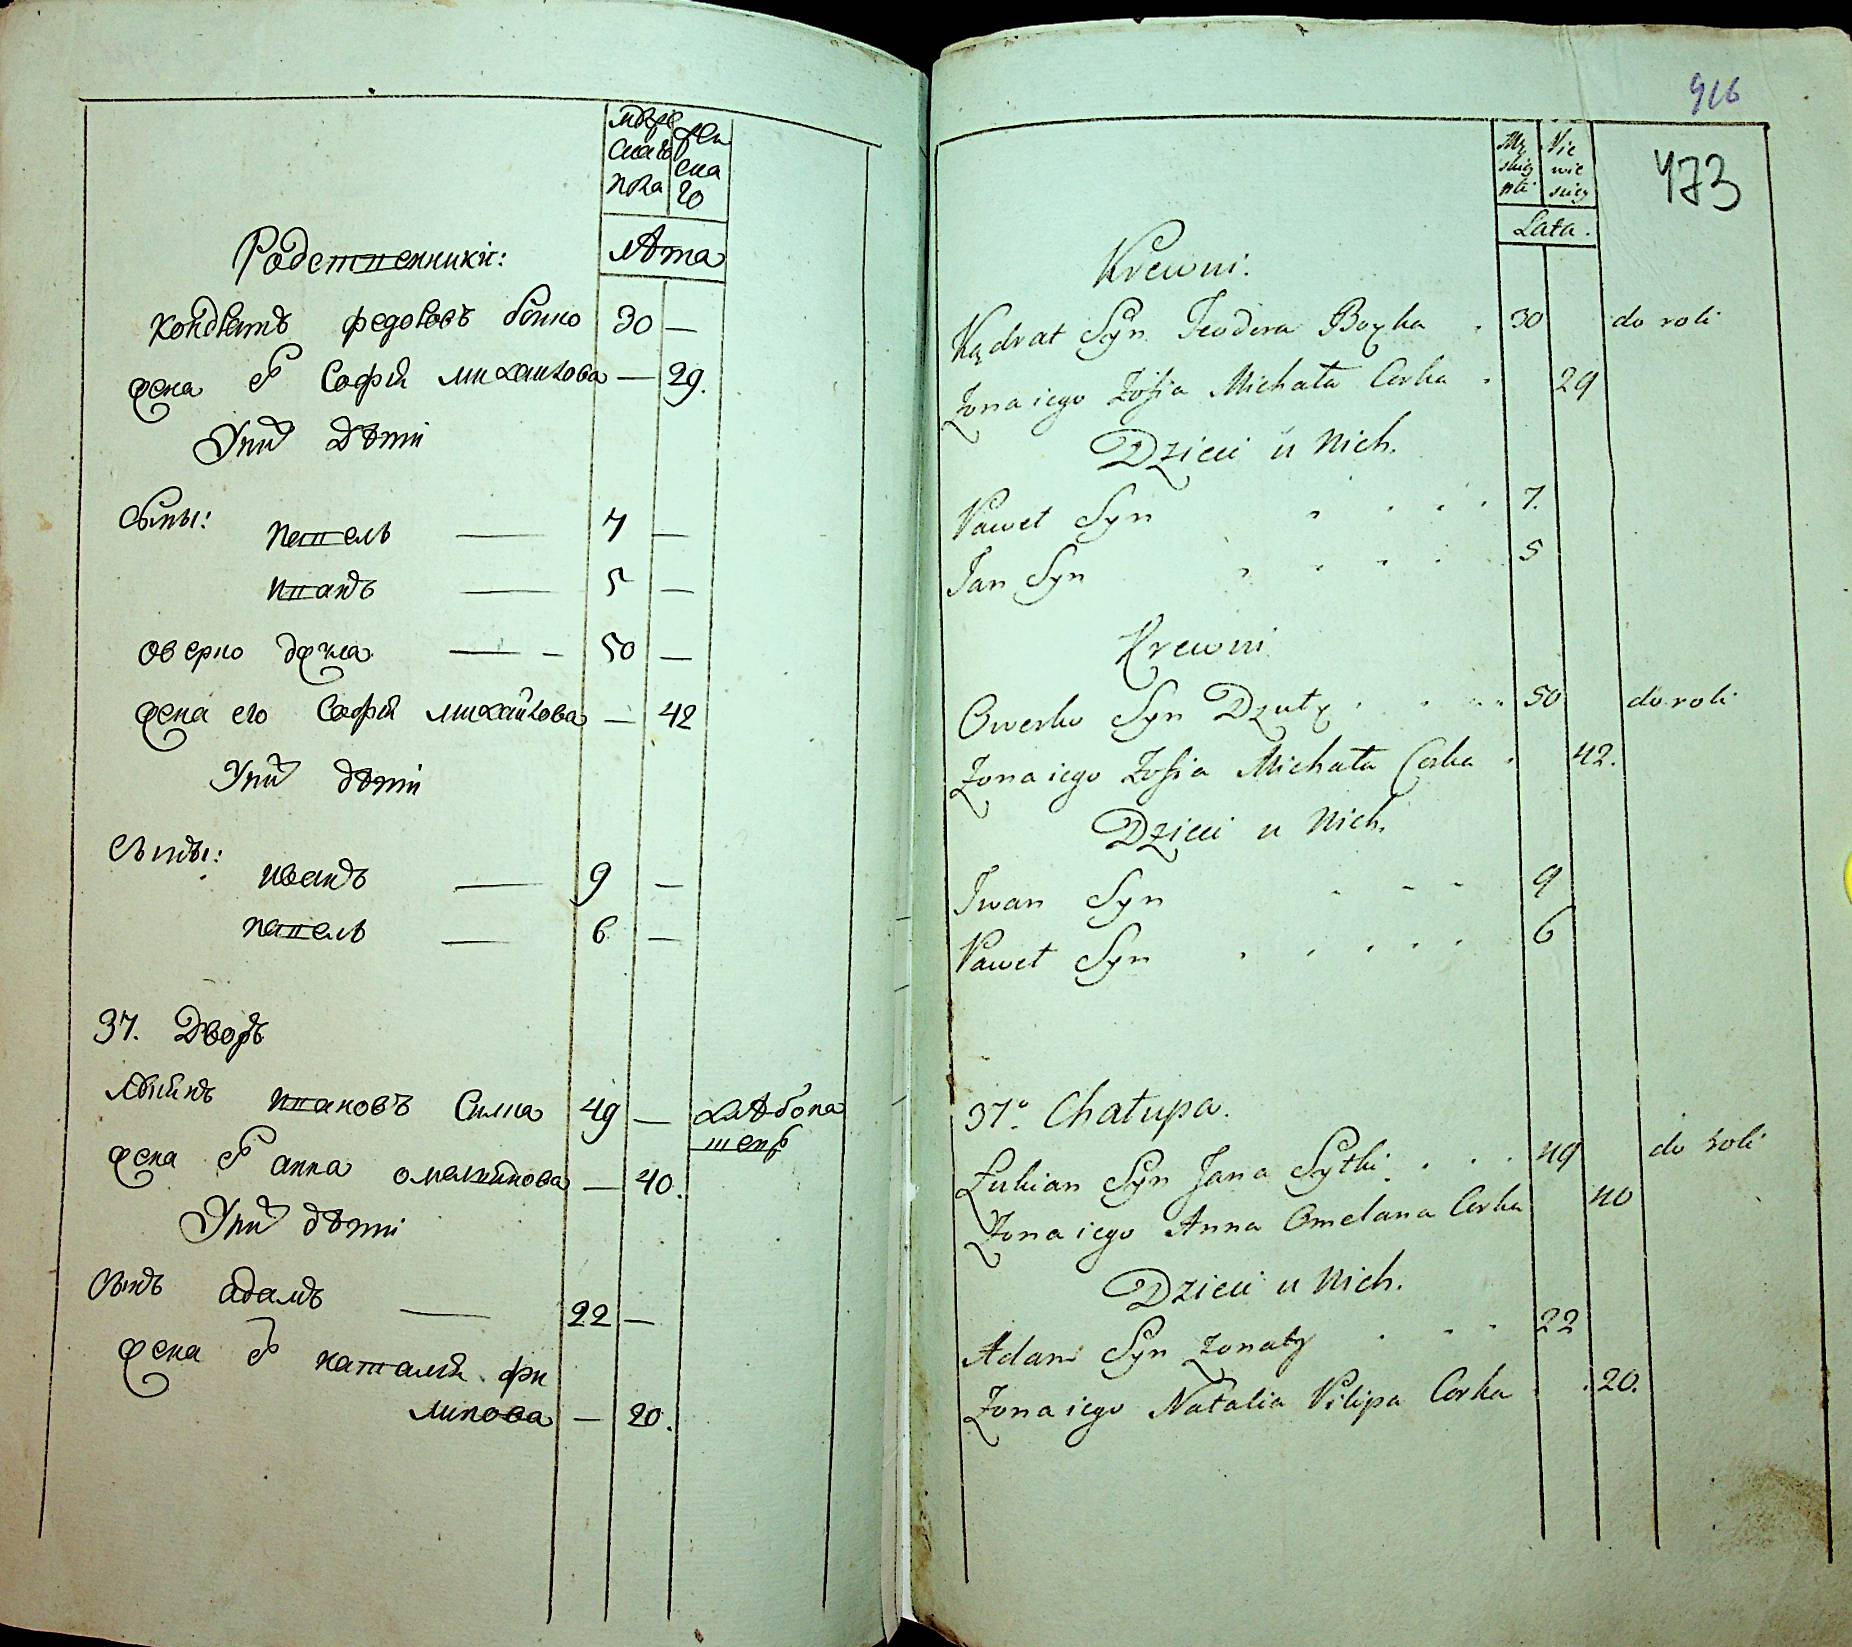 Родственники:
лѣта
Кондратъ Федоровъ
30 —
жена его Софiя Михайлова — 29.
У них дѣти
Сыны:
Павелъ — 7 —
Иванъ — 5 —
Оверко — 50 —
жена его Софiя Михайлова — 42
У них дѣти
Сыны:
Иванъ — 9 —
Павелъ — 6 —
37. Дворъ
Ивановъ 49 — хлѣбопа
шецъ
жена его Анна — 40.
У них дѣти
Сынъ Адамъ — 22 —
жена его Наталiя Фи
липова — 20.
916
473
Lata.
Krewni.
Kądrat Syn Teodora 30 do roli
Żona iego Zofia Michała Corka 29
Dzieci u Nich.
Paweł Syn 7.
Jan Syn 5
Krewni
Owerko Syn 50 do roli
Żona iego Zofia Michała Corka 42.
Dzieci u Nich.
Iwan Syn 9
Paweł Syn 6
37° Chałupa.
Łukian Syn Jana Sytki 49 do roli
Żona iego Anna Omelana Corka 40
Dzieci u Nich.
Adam Syn żonaty 22
Żona iego Natalia Filipa Corka 20.